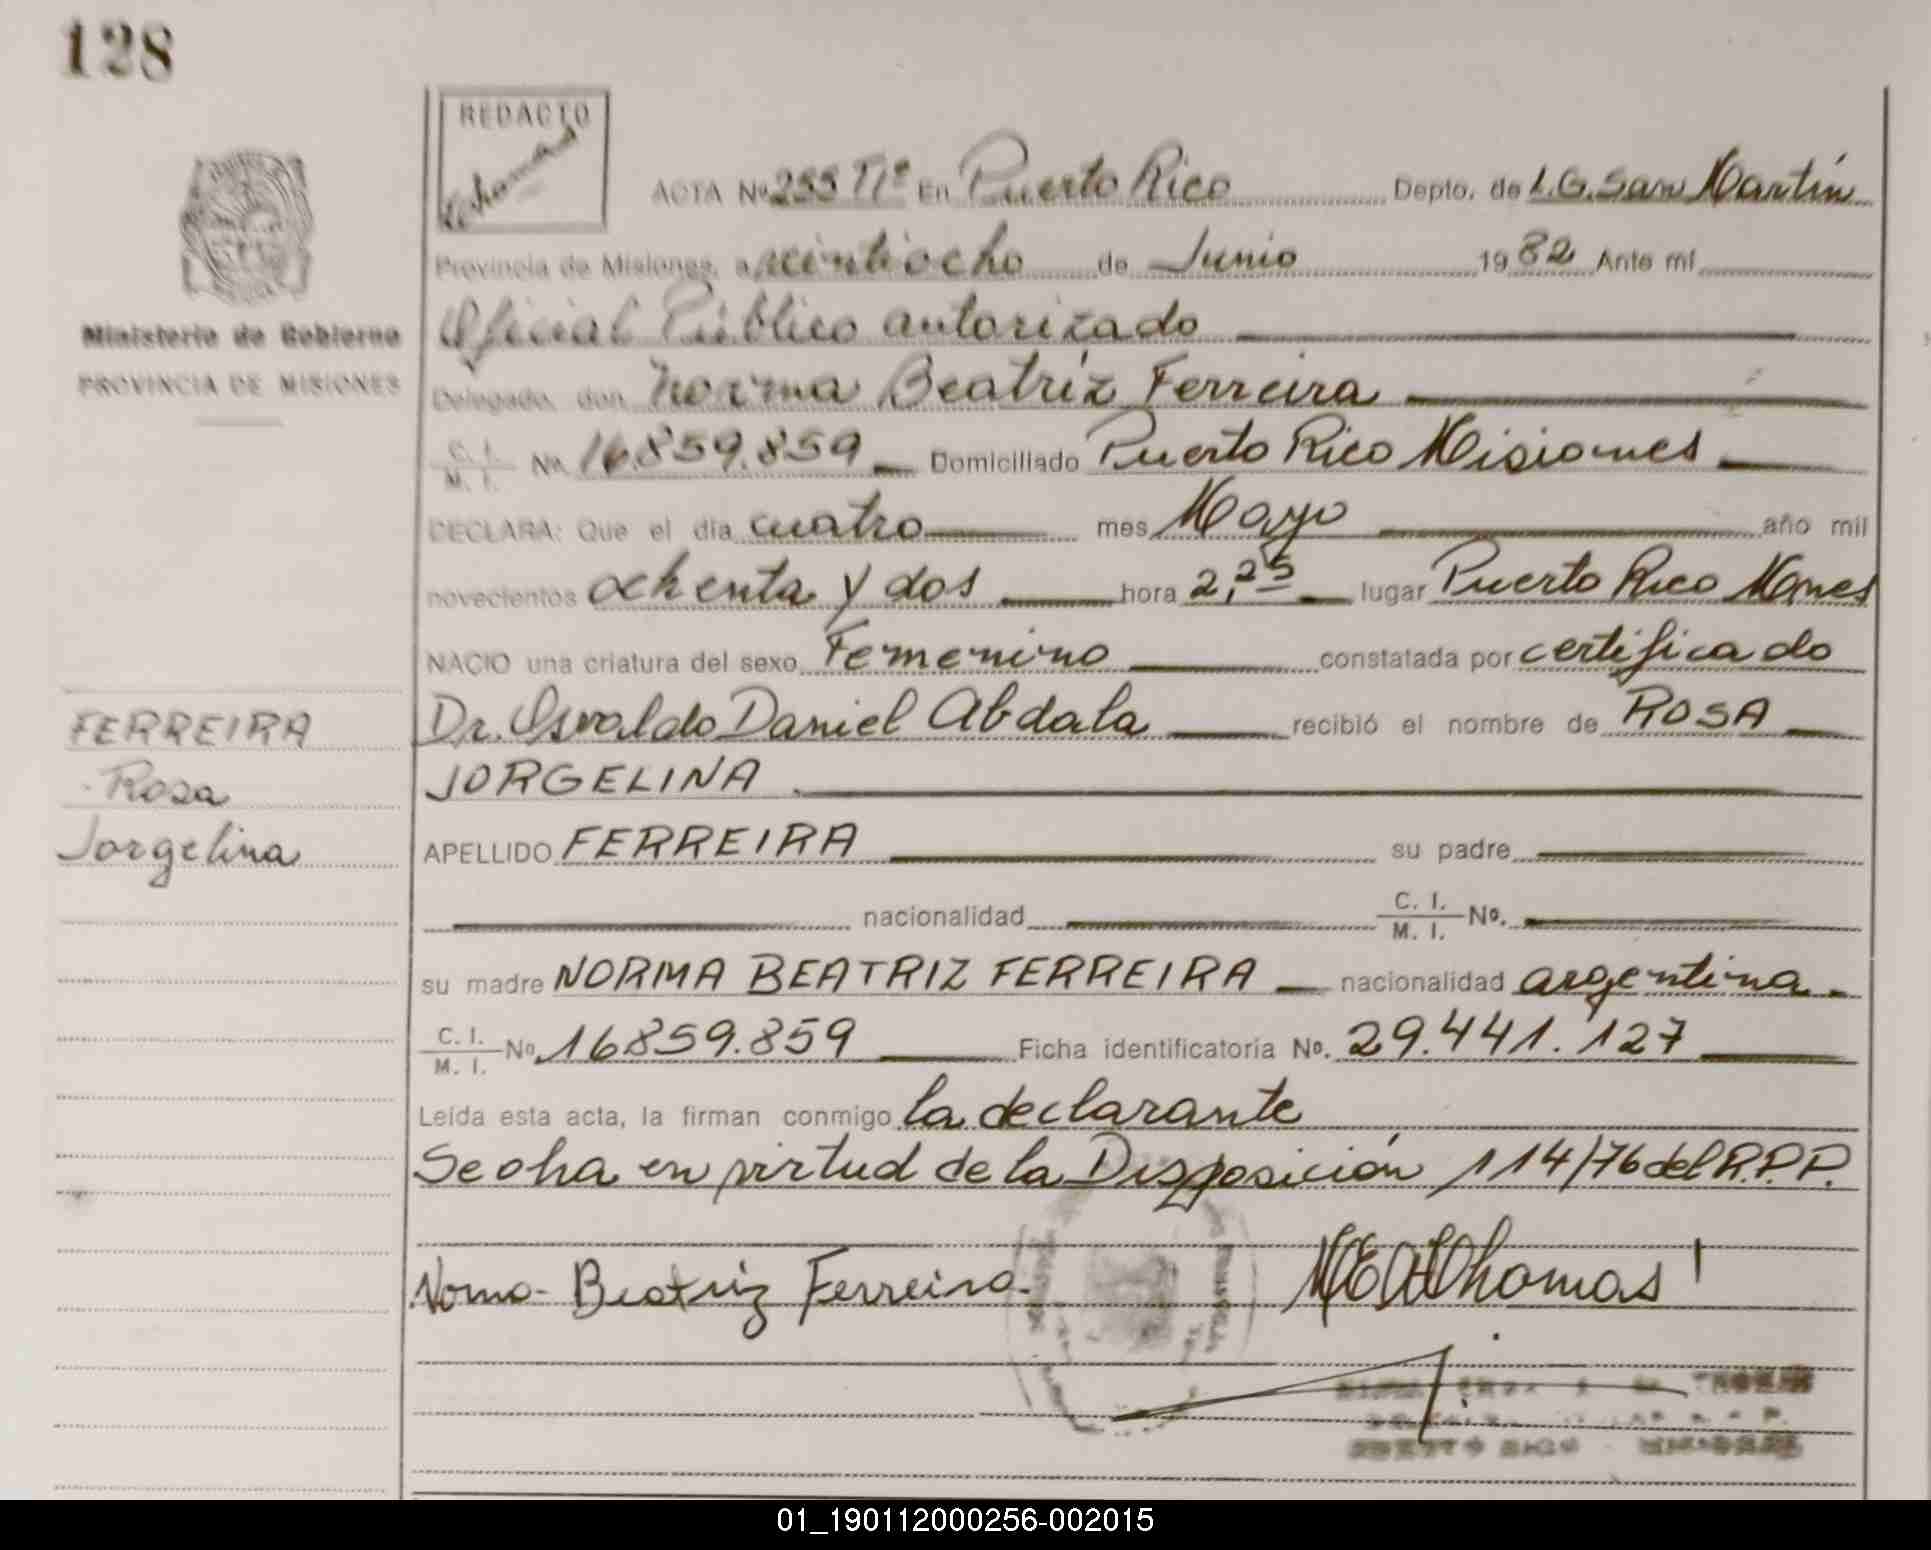 128
REDACTO
ACTA Nº 255 Tº En Puerto Rico Depto. de L.G. San Martín
Provincia de Misiones, a veintiocho de Junio 1982 Ante mí
Oficial Público autorizado
Ministerio de Gobierno
PROVINCIA DE MISIONES
Delegado, don Norma Beatríz Ferreira
C. I. M. I. Nº 16.859.859 Domiciliado Puerto Rico Misiones
DECLARA: Que el día cuatro mes Mayo año mil
novecientos ochenta y dos hora 2,25 lugar Puerto Rico Mnes
NACIO una criatura del sexo Femenino constatada por certificado
Dr. Osvaldo Daniel Abdala recibió el nombre de ROSA
JORGELINA
FERREIRA
Rosa
Jorgelina
APELLIDO FERREIRA su padre
nacionalidad C. I. M. I. Nº.
su madre NORMA BEATRIZ FERREIRA nacionalidad argentina
C. I. M. I. Nº 16859.859 Ficha identificatoria Nº. 29.441.127
Leída esta acta, la firman conmigo la declarante
Se oha en virtud de la Disposición 114/76 del R.P.P.
Norma Beatriz Ferreira
PUERTO RICO - MISIONES
01_190112000256-002015